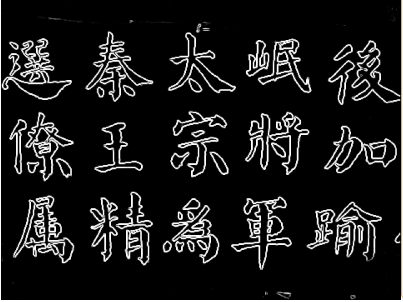 後加踰
岷將軍
太宗為
秦王精
選僚属